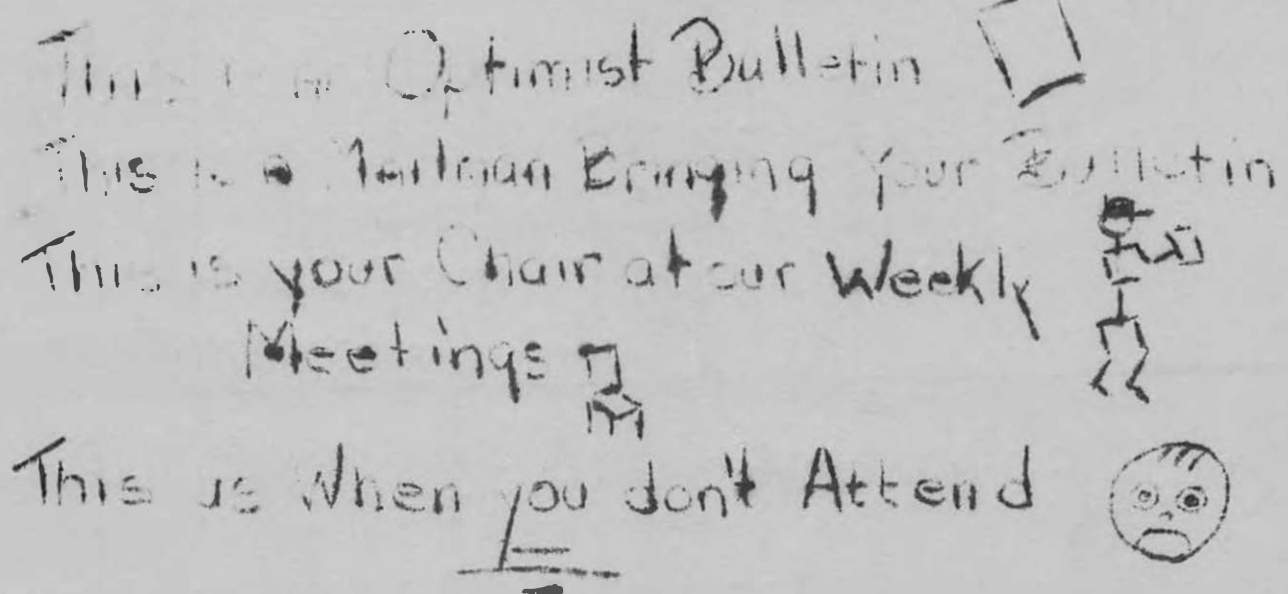 This is an Optimist Bulletin
This is a Mailman Bringing Your Bulletin
This is your Chair at our Weekly
Meetings
This is When you don't Attend